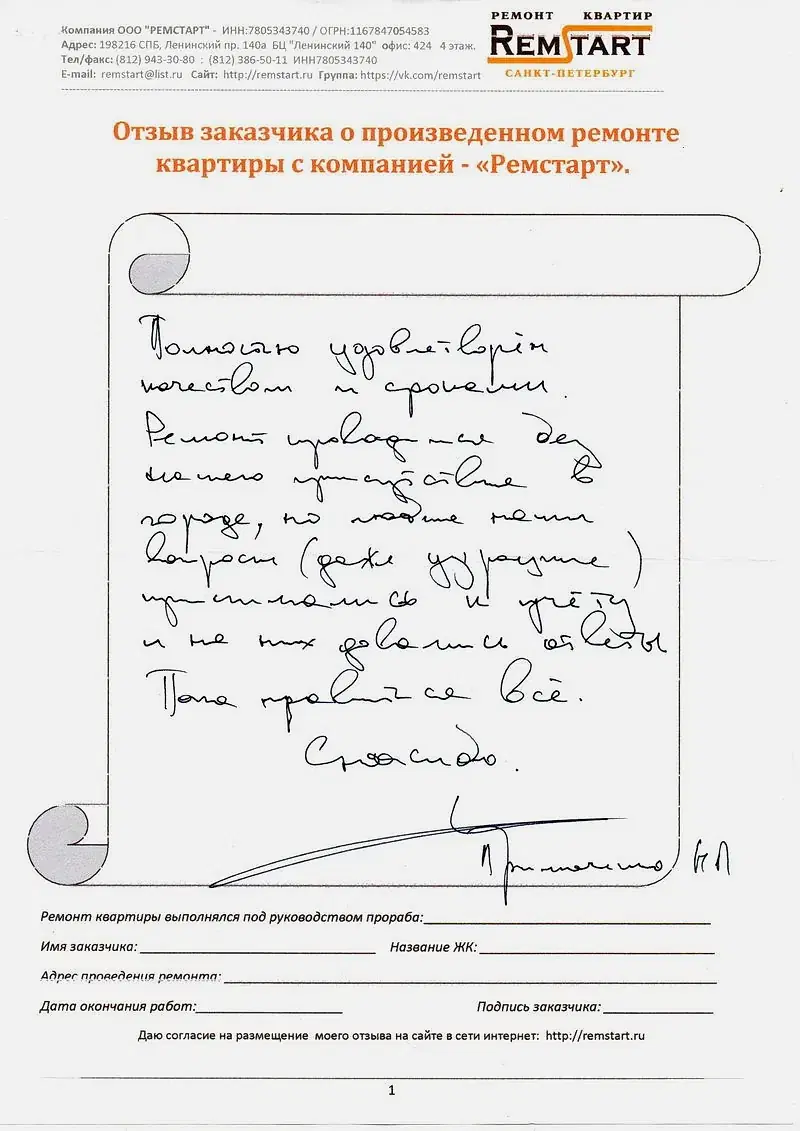 Компания ООО "РЕМСТАРТ" - ИНН:7805343740 / ОГРН:1167847054583
Адрес: 198216 СПБ, Ленинский пр. 140а БЦ "Ленинский 140" офис: 424 4 этаж.
Тел/факс: (812) 943-30-80 : (812) 386-50-11 ИНН7805343740
E-mail: remstart@list.ru Сайт: http://remstart.ru Группа: https://vk.com/remstart
РЕМОНТ КВАРТИР
REMSTART
САНКТ-ПЕТЕРБУРГ
Отзыв заказчика о произведенном ремонте
квартиры с компанией - «Ремстарт».
Полностью удовлетворён
качеством и сроками.
Ремонт проводился без
нашего присутствие в
городе, но любые наши
вопросы (даже )
принимались к учёту
и на них давались ответы
Пока нравится всё.
Спасибо.
НЛ
Ремонт квартиры выполнялся под руководством прораба:
Имя заказчика: Название ЖК:
Адрес проведения ремонта:
Дата окончания работ: Подпись заказчика:
Даю согласие на размещение моего отзыва на сайте в сети интернет: http://remstart.ru
1